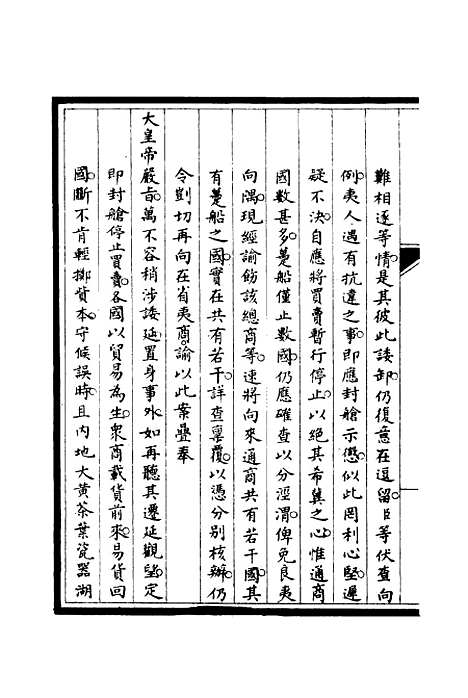 難相逐等情是其彼此諉卸仍復意在逗留臣等伏查向
例夷人遇有抗違之事即應封艙示懲似此罔利心堅遲
疑不決自應將買賣暫行停止以絕其希冀之心惟通商
國數甚多躉船僅止數國仍應確查以分涇渭俾免良夷
向隅現經諭飭該總商等速將向來通商共有若干國其
有躉船之國實在共有若干詳查稟覆以憑分別核辦仍
令剴切再向在省夷商諭以此案疊奉
大皇帝嚴旨萬不容稍涉諉延置身事外如再聽其遷延觀望定
即封艙停止買賣各國以貿易為生眾商載貨前來易貨回
國斷不肯輕擲貲本守候誤時且內地大黃茶葉瓷器湖